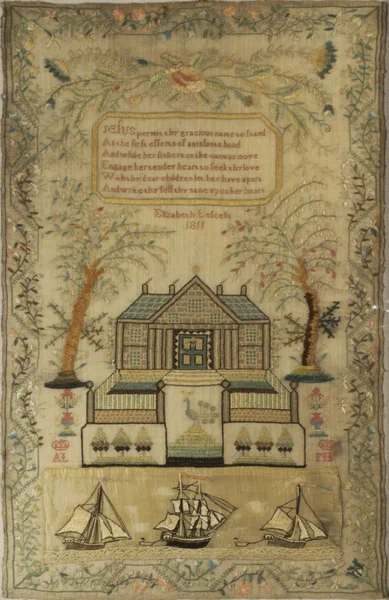 Jesus permit thy gracious name to stand
As the first efforts of an infants hand
And while her fingers on the canvas move
Engage her tender heart to seek thy love
With thy dear children let her have a part
And write thy self thy name upon her heart
Elizabeth
AL